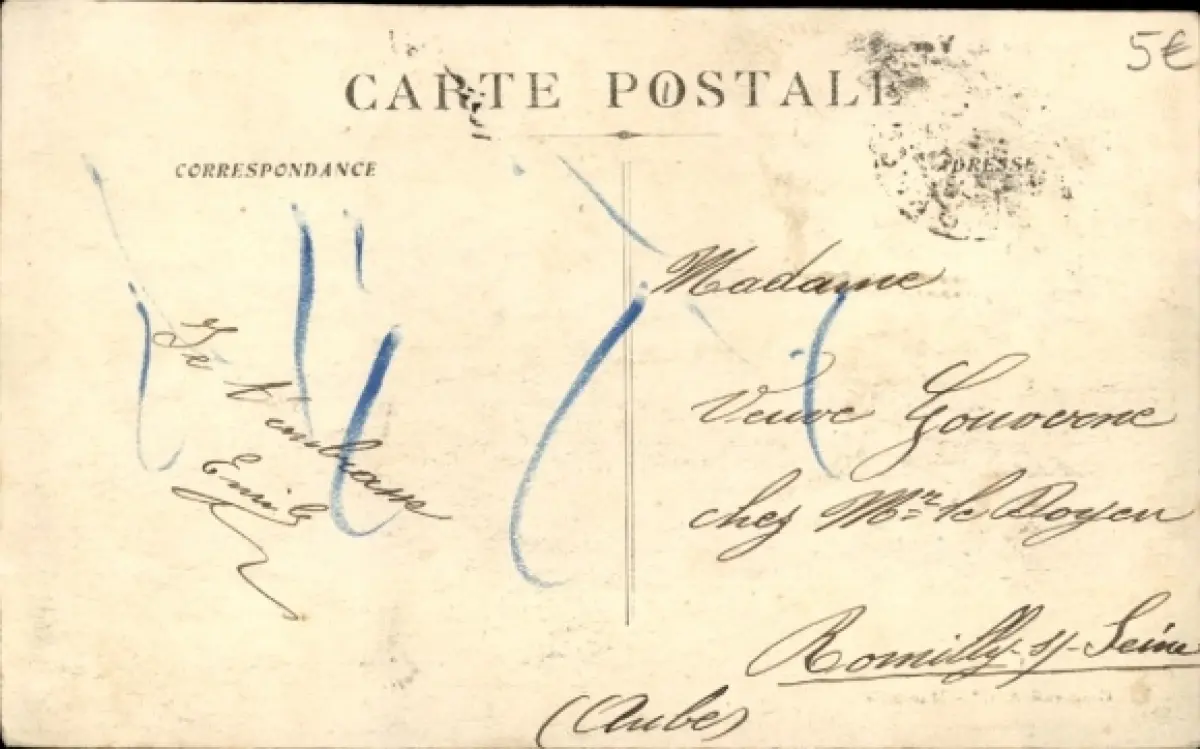 5€
CARTE POSTALE
CORRESPONDANCE
ADRESSE
Je t'embrasse
Emile
Madame
Veuve Gouverne
chez Mr le Doyen
Romilly-s/-Seine
(Aube)